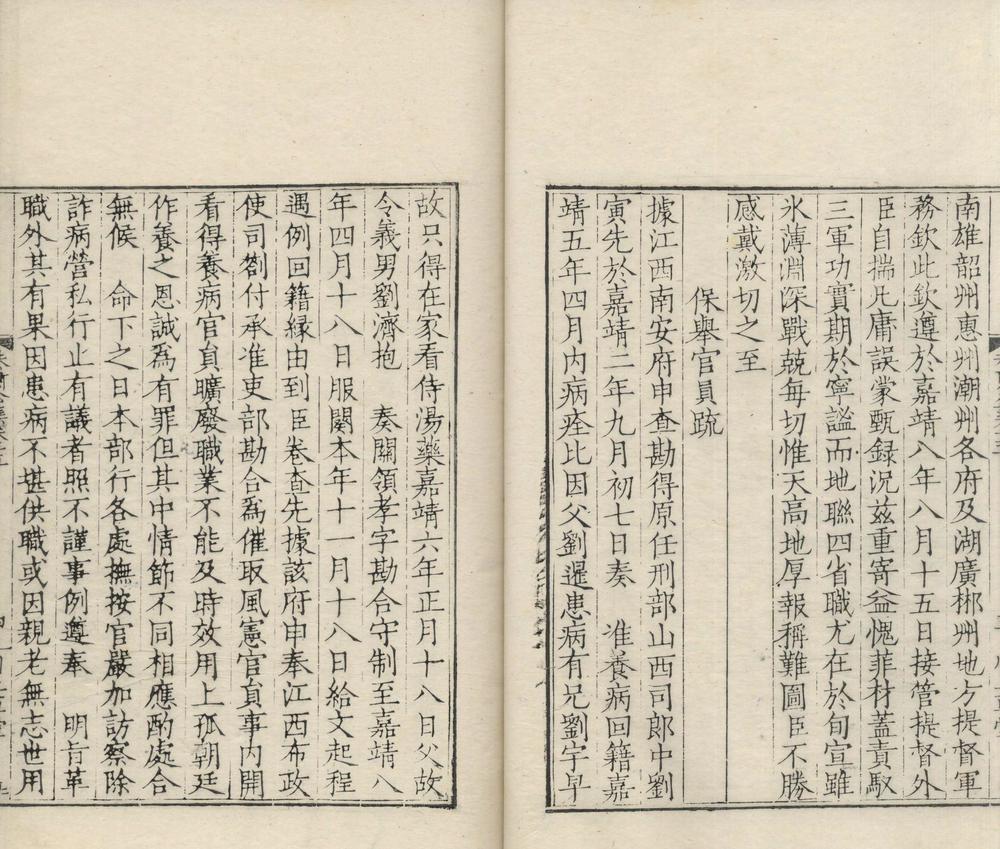 南雄韶州惠州潮州各府及湖廣郴州地方提督軍
務欽此欽遵於嘉靖八年八月十五日接管提督外
臣自揣凡庸誤蒙甄録況茲重寄益愧菲材蓋責馭
三軍功實期於寧謐而地聯四省職尤在於旬宣雖
氷薄淵深戰兢每切惟天高地厚報稱難圖臣不勝
感戴激切之至
保舉官員疏
據江西南安府申查勘得原任刑部山西司郎中劉
寅先於嘉靖二年九月初七日奏　准養病回籍嘉
靖五年四月内病痊比因父劉暹患病有兄劉宇早
故只得在家看侍湯藥嘉靖六年正月十八日父故
令義男劉濟抱　奏關領孝字勘合守制至嘉靖八
年四月十八日服闋本年十一月十八日給文起程
遇例回籍縁由到臣卷查先據該府申奉江西布政
使司劄付承准吏部勘合爲催取風憲官員事内開
看得養病官員曠廢職業不能及時效用上孤朝廷
作養之恩誠爲有罪但其中情節不同相應酌處合
無候　命下之日本部行各處撫按官嚴加訪察除
詐病營私行止有議者照不謹事例遵奉　明旨革
職外其有果因患病不堪供職或因親老無志世用